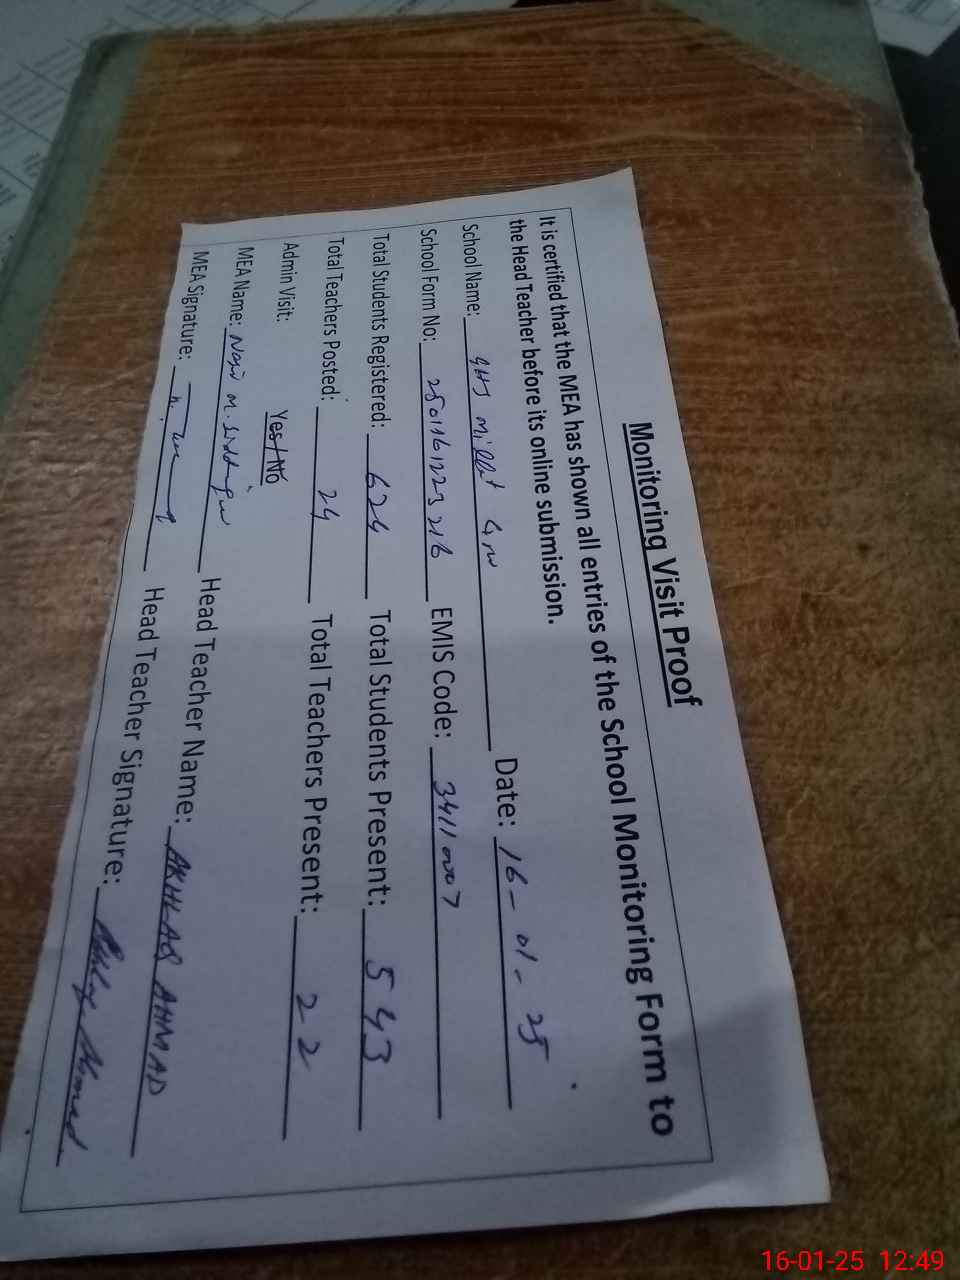 Monitoring Visit Proof
It is certified that the MEA has shown all entries of the School Monitoring Form to
the Head Teacher before its online submission.
School Name: GHS Millat Date: 16-01-25
School Form No: EMIS Code: 34110007
Total Students Registered: 624 Total Students Present: 543
Total Teachers Posted: 24 Total Teachers Present: 22
Admin Visit: Yes/No
MEA Name: Head Teacher Name: AKHLAQ AHMAD
MEA Signature: Head Teacher Signature:
16-01-25 12:49